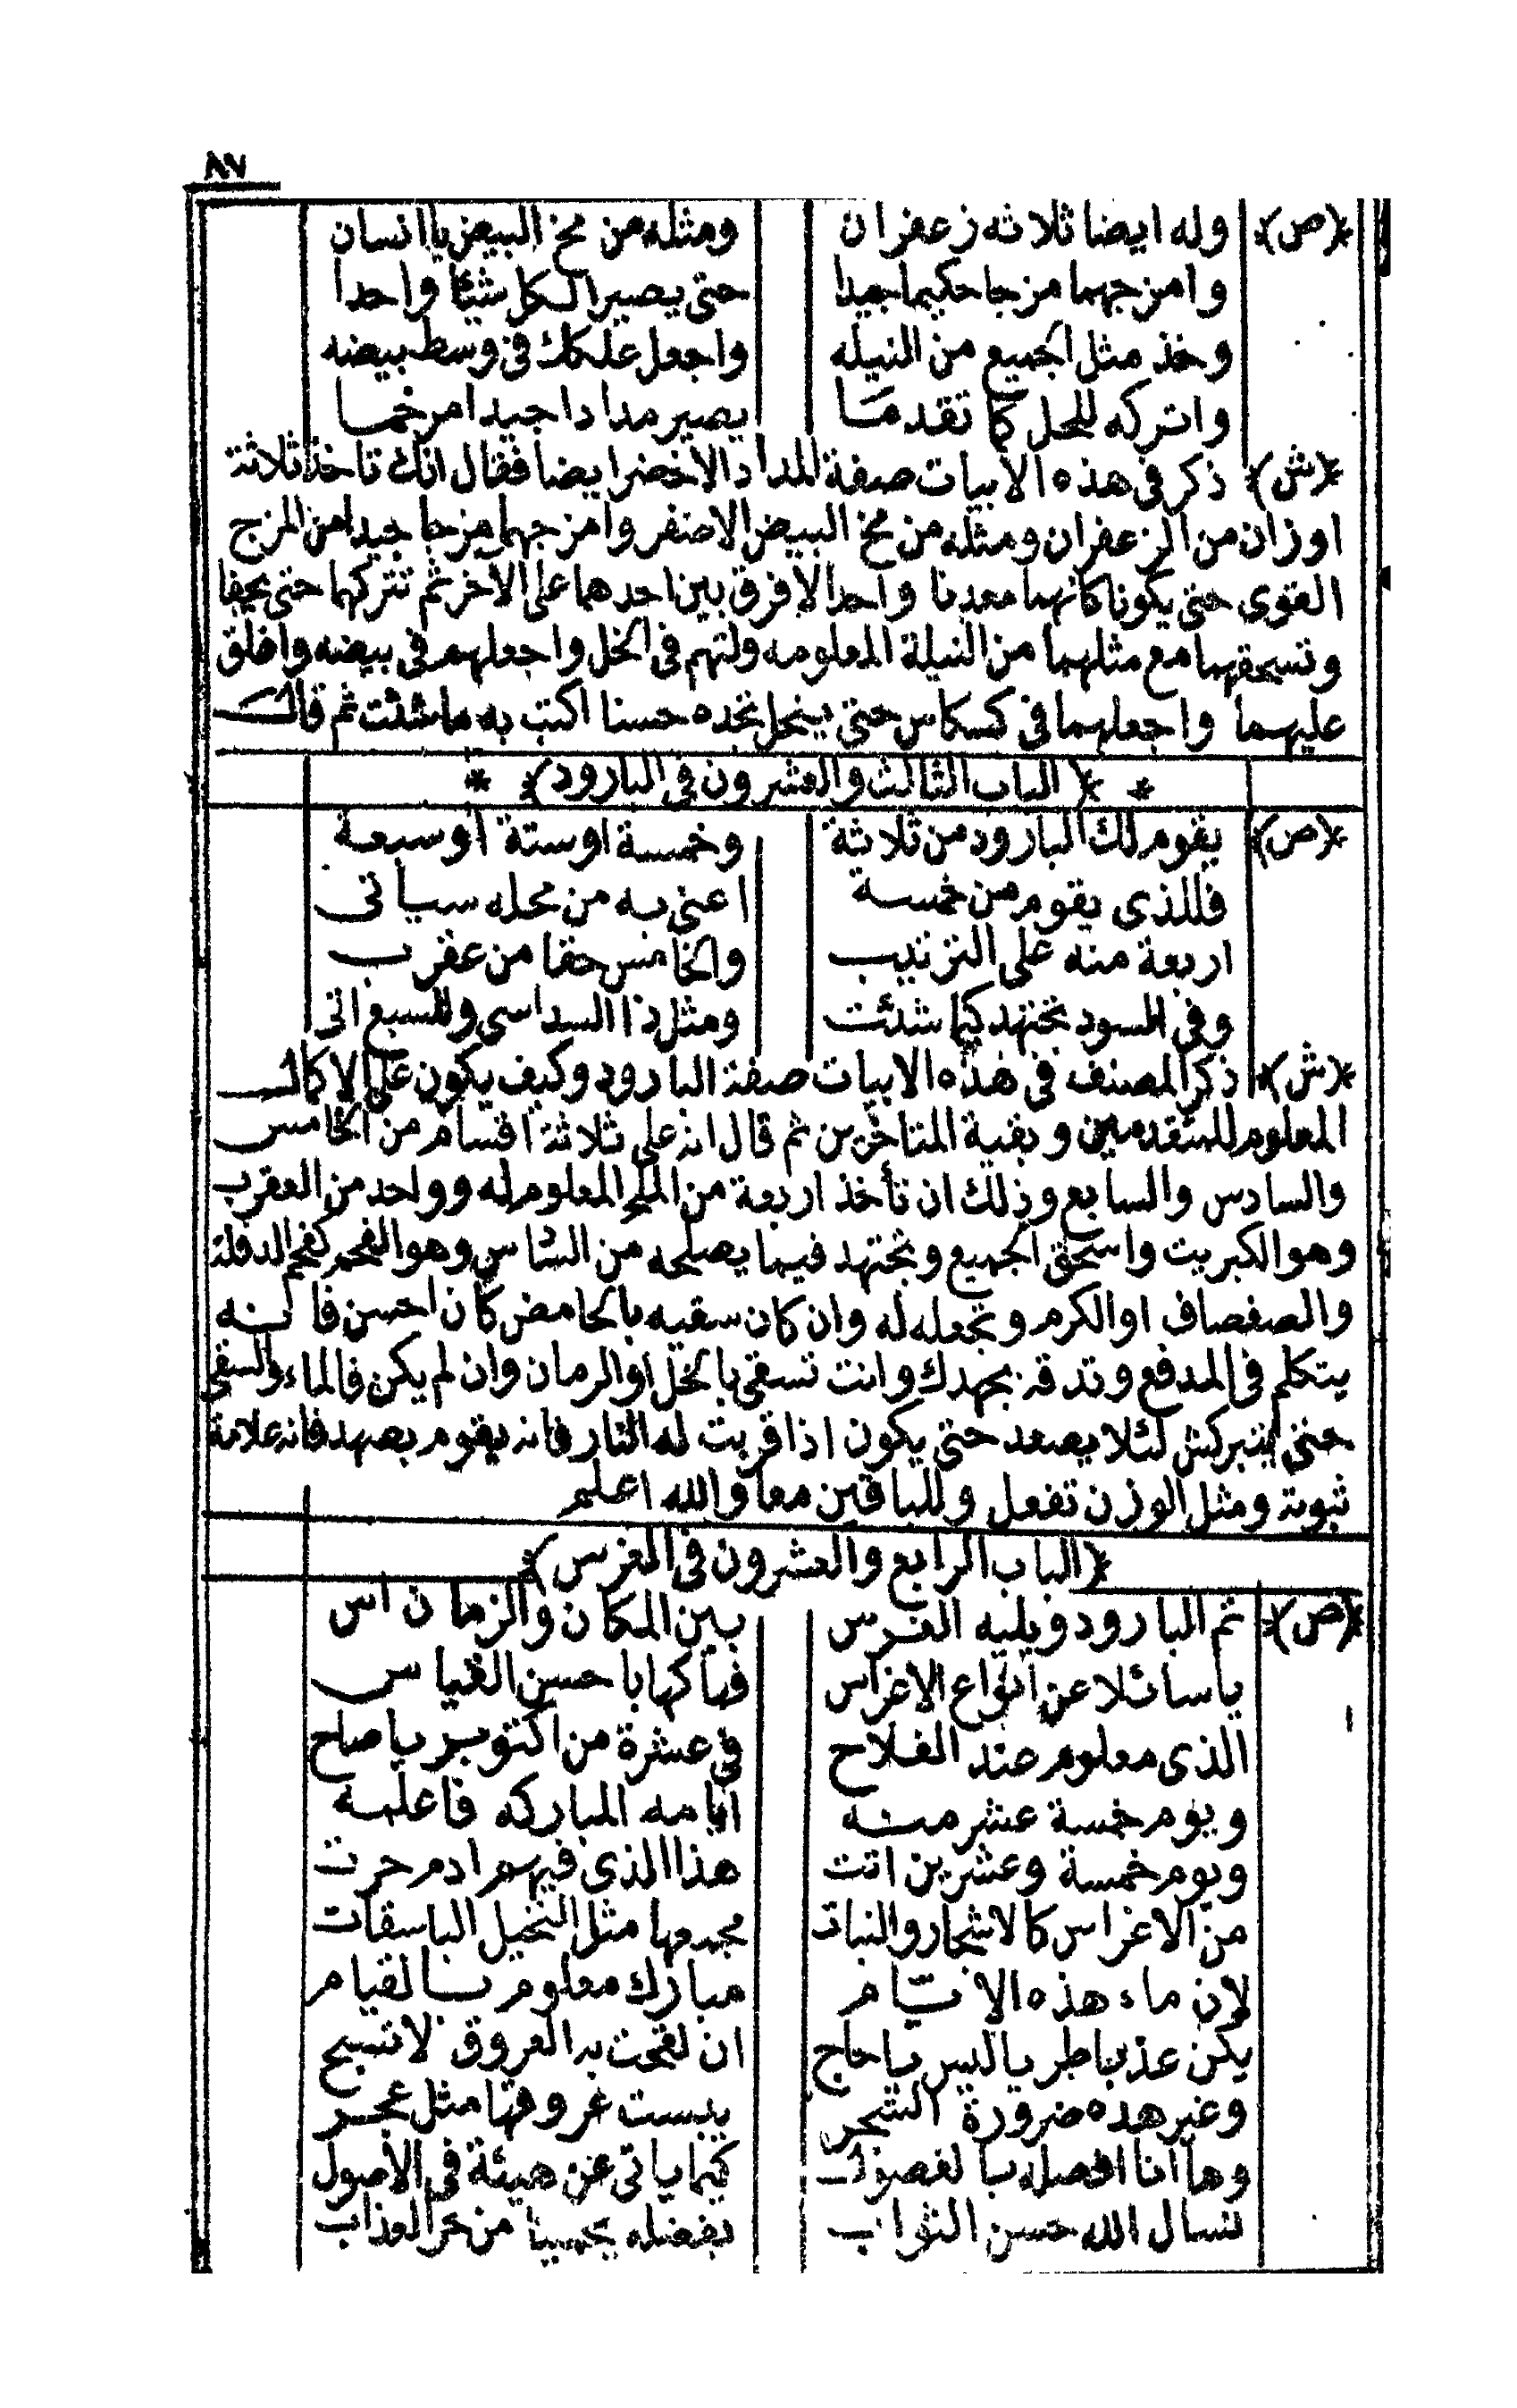 ٨٧
﴿ص﴾ وله ايضا ثلاثه زعفران ومثله من مخ البيض يا انسان
وامزجهما مزجا حكيما جيدا حتى يصير الكل شيئا واحدا
وخذ مثل الجميع من النيله واجعل علكك في وسط بيضه
واتركه للحل كما تقدما يصير مدادا جيدا مرخما
﴿ش﴾ ذكر في هذه الأبيات صفة المداد الاخضر ايضا فقال انك تاخذ ثلاثة
اوزان من الزعفران ومثله من مخ البيض الاصفر وامزجهما مزجا جيدا من المزج
القوى حتى يكونا كانهما معدنا واحدا لا فرق بين احدهما على الآخر ثم تتركهما حتى يجفا
وتسحقهما مع مثلهما من النيلة المعلومه ولتهم في الخل واجعلهم في بيضه وافلق
عليهما واجعلهما في كسكاس حتى ينحل تجده حسنا اكتب به ما شئت ثم قال
* ﴿الباب الثالث والعشرون في البارود﴾ *
﴿ص﴾ يقوم لك البارود من ثلاثة وخمسة اوستة اوسبعة
فللذى يقوم من خمسة اعنى به من محله سياتى
اربعة منه على الترتيب والخامس حقا من عقرب
وفي السود تجتهد كيما شئت ومثل ذا السداسى وللسبع اتى
﴿ش﴾ ذكر المصنف في هذه الابيات صفة البارود وكيف يكون على الاكمال
المعلوم للمتقدمين وبغية المتاخرين ثم قال انه على ثلاثة اقسام من الخامس
والسادس والسابع وذلك ان تأخذ اربعة من الملح المعلوم له وواحد من العقرب
وهو الكبريت واسحق الجميع وتجتهد فيما يصلحه من الساس وهو الفحم كفحم الدفلة
والصفصاف او الكرم وتجعله له وان كان سقيه بالحامض كان احسن فانه
يتكلم في المدفع وتدقه بجهدك وانت تسقى بالخل او الرمان وان لم يكن فالماء والسقى
حتى يتبركش لئلا يصعد حتى يكون اذا قربت له النار فانه يقوم بصهد فانه علامة
ثبوته ومثل الوزن تفعل وللباقين معا والله اعلم
﴿الباب الرابع والعشرون في الغرس﴾
﴿ص﴾ ثم البارود ويليه الغرس بين المكان والزمان اس
يا سائلا عن انواع الاغراس فهاكها با حسن القياس
الذى معلوم عند الفلاح في عشرة من اكتوبر يا صاح
ويوم خمسة عشر منه ايامه المباركه فاعلمه
ويوم خمسة وعشرين اتت هذا الذى فيهم ادم حرت
من الاغراس كالاشجار والنبات مجدعها مثل النخيل الباسقات
لان ماء هذه الايام مبارك معلوم بالقيام
يكن عذبا طريا ليس ياحاج ان لقحت به العروق لا تسبح
وغير هذه ضرورة الشجر يبست غروقها مثل عجر
وها انا افصله بالفصول كيما ياتى عن هيئة في الاصول
نسال الله حسن الثواب بفضله يحمينا من حر العذاب